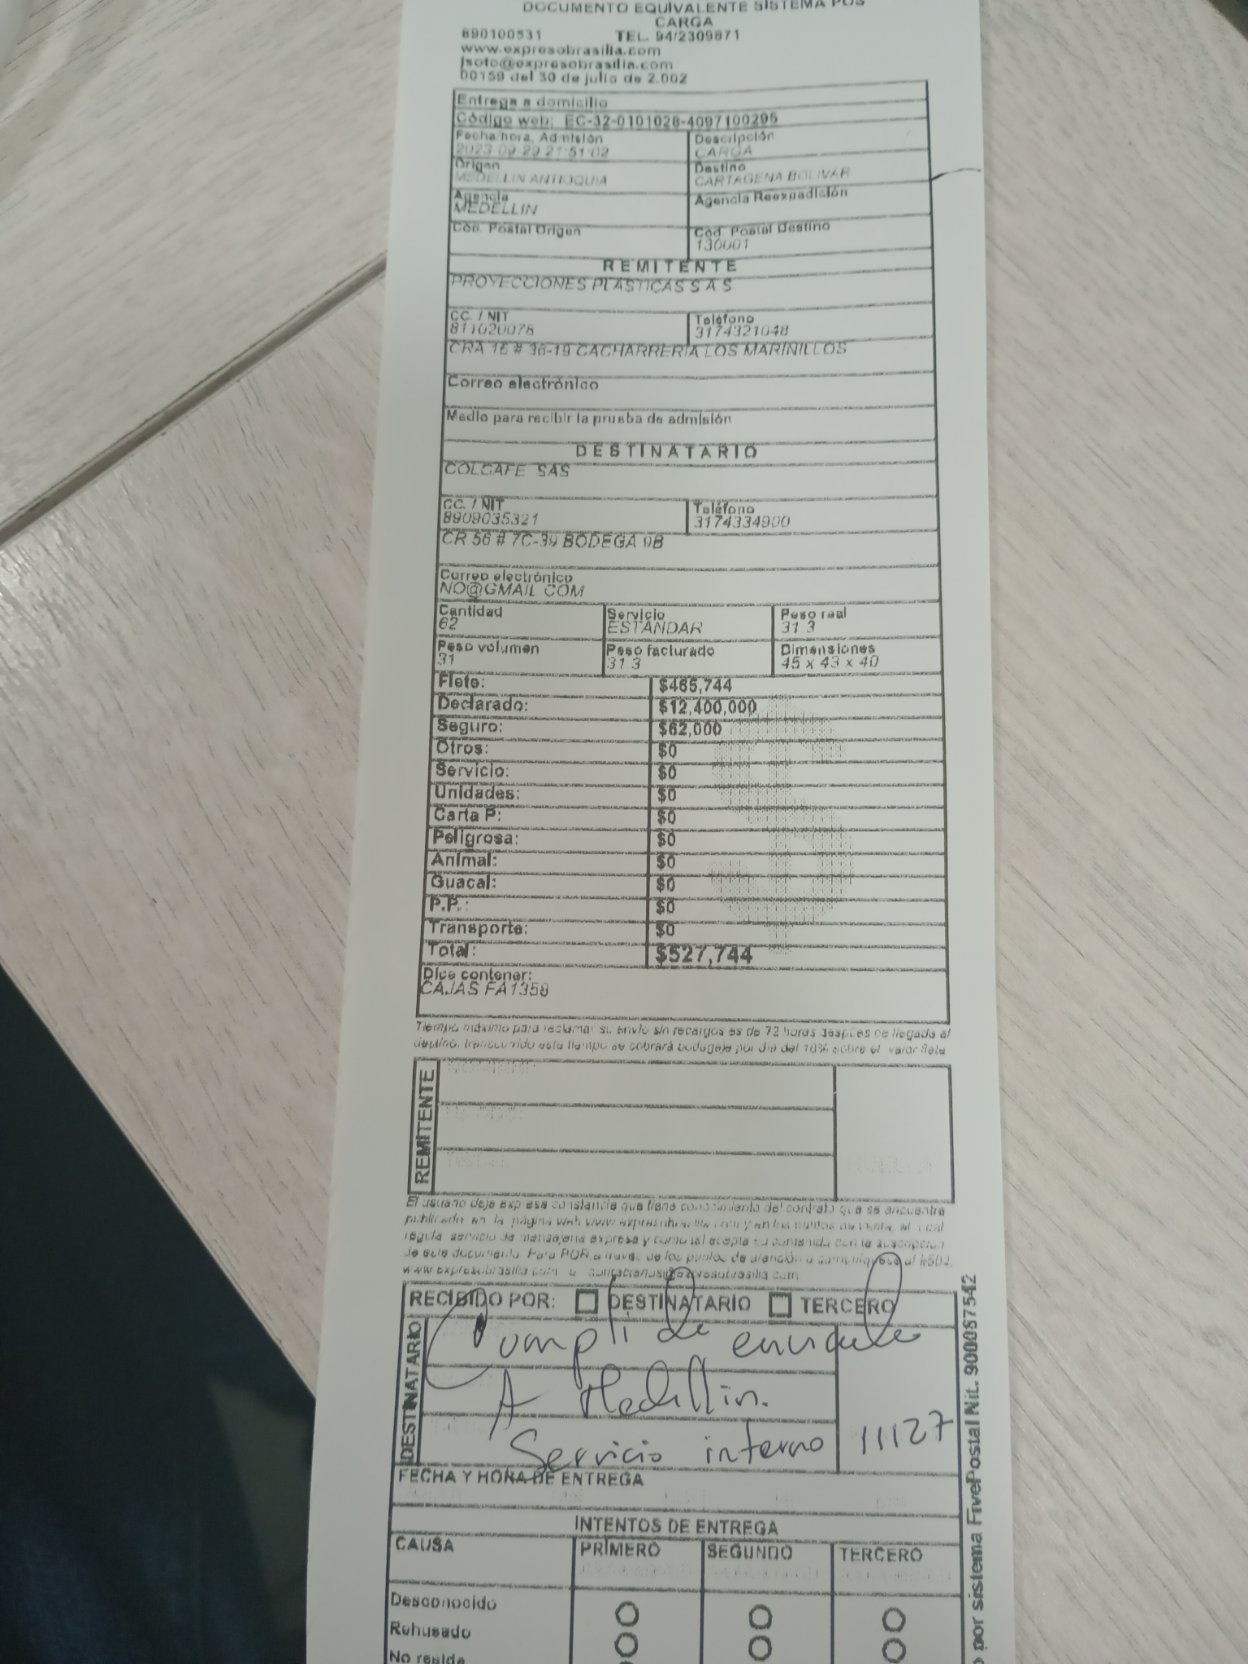 DOCUMENTO EQUIVALENTE SISTEMA POS
CARGA
890100531 TEL. 94/2309871
www.expresobrasilia.com
jsoto@expresobrasilia.com
00159 del 30 de julio de 2.002
Entrega a domicilio
Código web: EC-32-0101028-4097100295
Fecha/hora, Admisión Descripción
2023-09-29 21:51:02 CARGA
Origen Destino
MEDELLIN ANTIOQUIA CARTAGENA BOLIVAR
Agencia Agencia Reexpedición
MEDELLIN
Cod. Postal Origen Cód. Postal Destino
130001
REMITENTE
PROYECCIONES PLASTICAS S A S
CC. / NIT Teléfono
811020078 3174321048
CRA 16 # 36-19 CACHARRERIA LOS MARINILLOS
Correo electrónico
Medio para recibir la prueba de admisión
DESTINATARIO
COLCAFE SAS
CC. / NIT Teléfono
8909035321 3174334900
CR 56 # 7C-39 BODEGA 9B
Correo electrónico
NO@GMAIL COM
Cantidad Servicio Peso real
62 ESTANDAR 31.3
Peso volumen Peso facturado Dimensiones
31 31.3 45 x 43 x 40
Flete: $465,744
Declarado: $12,400,000
Seguro: $62,000
Otros: $0
Servicio: $0
Unidades: $0
Carta P: $0
Peligrosa: $0
Animal: $0
Guacal: $0
P.P.: $0
Transporte: $0
Total: $527,744
Dice contener:
CAJAS FA1358
Tiempo máximo para reclamar su envío sin recargos es de 72 horas después de llegado al
destino, transcurrido este tiempo se cobrará bodegaje por día del 10% sobre el valor flete
REMITENTE
El usuario deja expresa constancia que tiene conocimiento del contrato que se encuentra
publicado en la página web www.expresobrasilia.com y en los puntos de venta, el cual
regula servicio de mensajería expresa y como tal acepta su contenido con la suscripción
de este documento. Para PQR a través de los puntos de atención o comuníquese al #502,
www.expresobrasilia.com o
RECIBIDO POR: DESTINATARIO TERCERO
DESTINATARIO
Cumpli de
A Medellin.
Servicio interno 11127
FECHA Y HORA DE ENTREGA
INTENTOS DE ENTREGA
CAUSA PRIMERO SEGUNDO TERCERO
Desconocido
Rehusado
No reside
o por sistema FivePostal Nit. 900087542